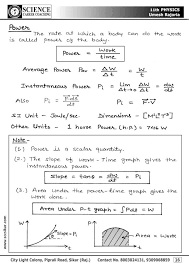 SCIENCE
CAREER COACHING
11th PHYSICS
Umesh Rajoria
Power
The rate at which a body can do the work
is called power of the body.
Power = Work / time
Average Power Pav = ΔW/Δt = W/t
Instantaneous Power Pi = Lim Δt→0 ΔW/Δt = dW/dt
Also Pi = F⃗.ds⃗/dt = F⃗.v⃗
SI Unit - Joule/Sec. Dimensions - [M¹L²T⁻³]
Other Units - 1 horse Power (h.p.) = 746 W
Note -
(1.) Power is a Scalar quantity.
(2.) The slope of Work-Time graph gives the
instantaneous power.
Slope = tanθ = dW/dt = Pi
(3.) Area under the Power-time graph gives the
work done.
Area Under P-t graph = ∫Pdt = W
City Light Colony, Piprali Road, Sikar (Raj.)